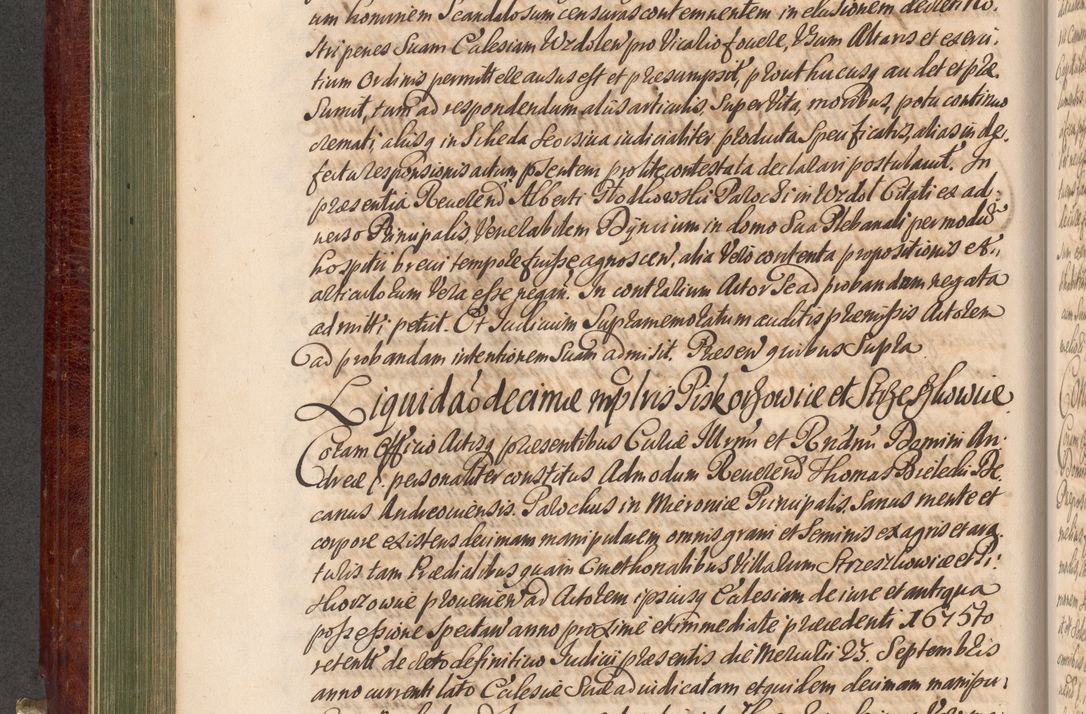 um hominem Scandalosum censuras contemnentem in elusionem decreti no:
stri penes Suam Ecclesiam Wzdolen pro Vicario fovere, Usum Altaris et exerci:
tium Ordinis permittere ausus est et præsumpsit, prout hucusq audet et præ
Sumit, tum ad respondendum aliis articulis, Super Vita, moribus, potu continuo
cremati, aliisq in Scheda Seorsiva iudicialiter producta Specificatis, alias in de:
fectu responsionis actum psentem pro lite contestata declarari postulavit. In
præsentia Reverend Alberti Parochi in Wzdol Citati ex ad:
verso Principalis, Venerabilem in domo Sua Plebanali per modu
hospitii brevi tempore fuisse agnoscen, alia Vero contenta propositionis et
articulorum Vera esse negan. In contrarium Actor Se ad probandum negata
admitti petiit. Et Iudicium Supramemoratum auditis præmissis Actorem
ad probandam intentionem Suam admisit. Presen quibus Supra
Liquidaō decimæ mplris Piskorzowice et Strzeszkowice
Coram Officio Actisq præsentibus Curiæ Illmi et Rndmi Domini An:
dreæ personaliter constitus Admodum Reverend Thomas Bielecki De
canus Andreoviensis. Parochus in Mieronice Principalis, Sanus mente et
corpore existens decimam manipularem omnis grani et Seminis ex agris et ara
turis tam Prædialibus quam Cmethonalibus Villarum Strzeszkowice et Pi:
skorzowie provenien ad Actorem ipsiusq Ecclesiam de iure et antiqua
possessione Spectan anno proxime et immediate præcedenti 1675to
retent decreto definitivo Iudicii præsentis die Mercurii 23. Septembris
anno currenti lato Ecclesiæ Suæ adiudicatam et quidem decimam manipu: